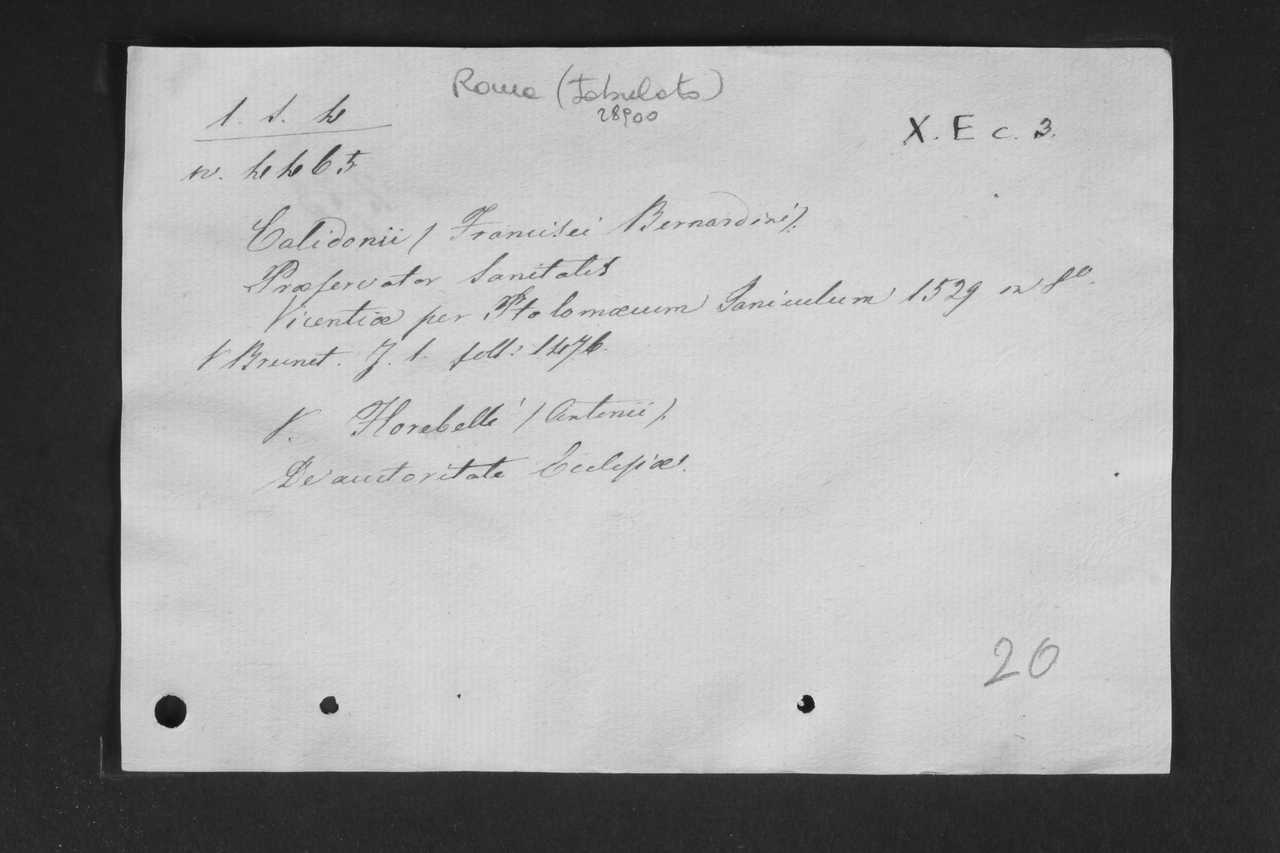 Roma (tabulato)
28900
1. s. 4
n. 4465
X. E c. 3.
Calidonii (Francisci Bernardini).
Præservator Sanitatis
Vicentiæ per Ptolomæum Janiculum 1529 in 8º.
V Brunet. T. 1. foll: 1476.
V. Florebelli (Antonii).
De auctoritate Ecclesiæ.
20